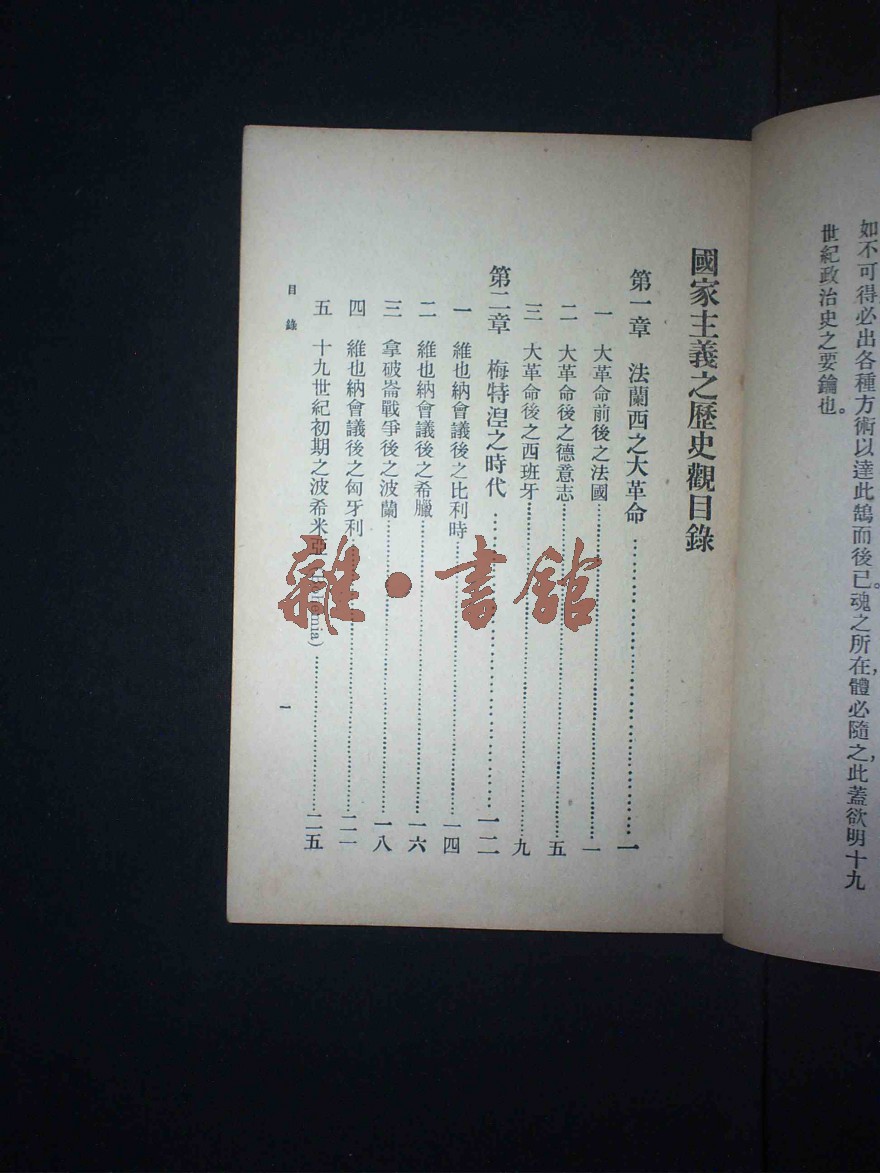 如不可得必出各種方術以達此鵠而後已。魂之所在，體必隨之，此蓋欲明十九
世紀政治史之要鑰也。
國家主義之歷史觀目錄
第一章 法蘭西之大革命……一
一 大革命前後之法國……一
二 大革命後之德意志……五
三 大革命後之西班牙……九
第二章 梅特涅之時代……一二
一 維也納會議後之比利時……一四
二 維也納會議後之希臘……一六
三 拿破崙戰爭後之波蘭……一八
四 維也納會議後之匈牙利……二一
五 十九世紀初期之波希米亞(Bohemia)……二五
目錄
一
雜·書館